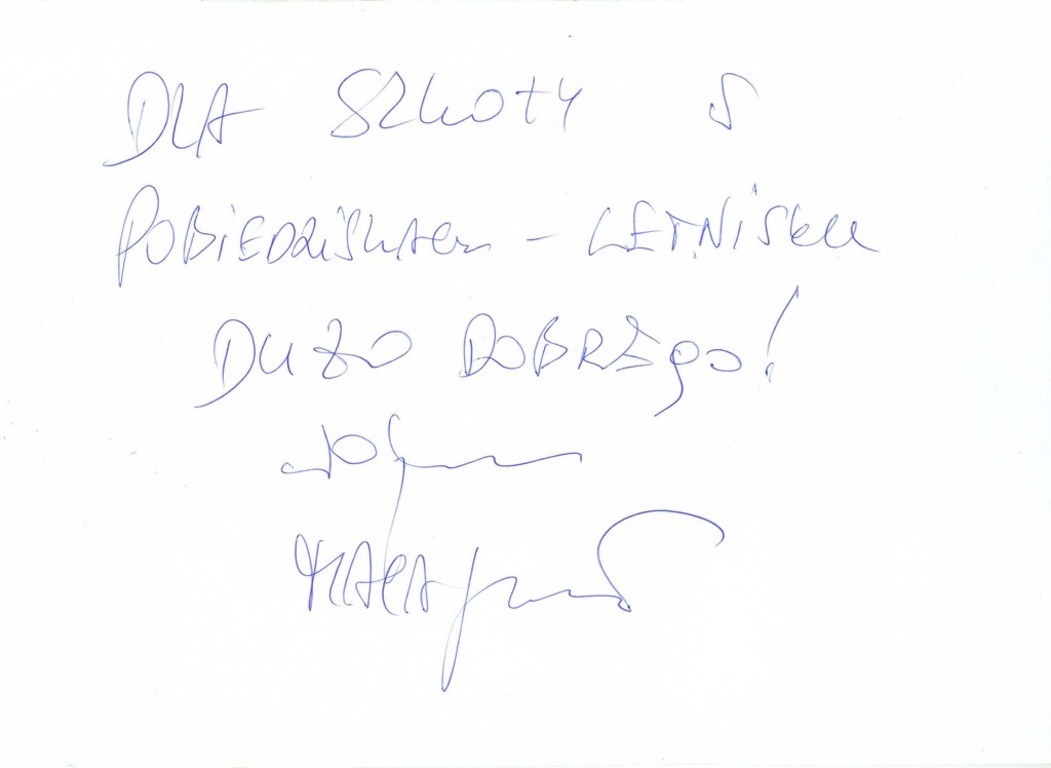 DLA SZKOŁY S
POBIEDZISKACH - LETNISKU
DUŻO DOBREGO!